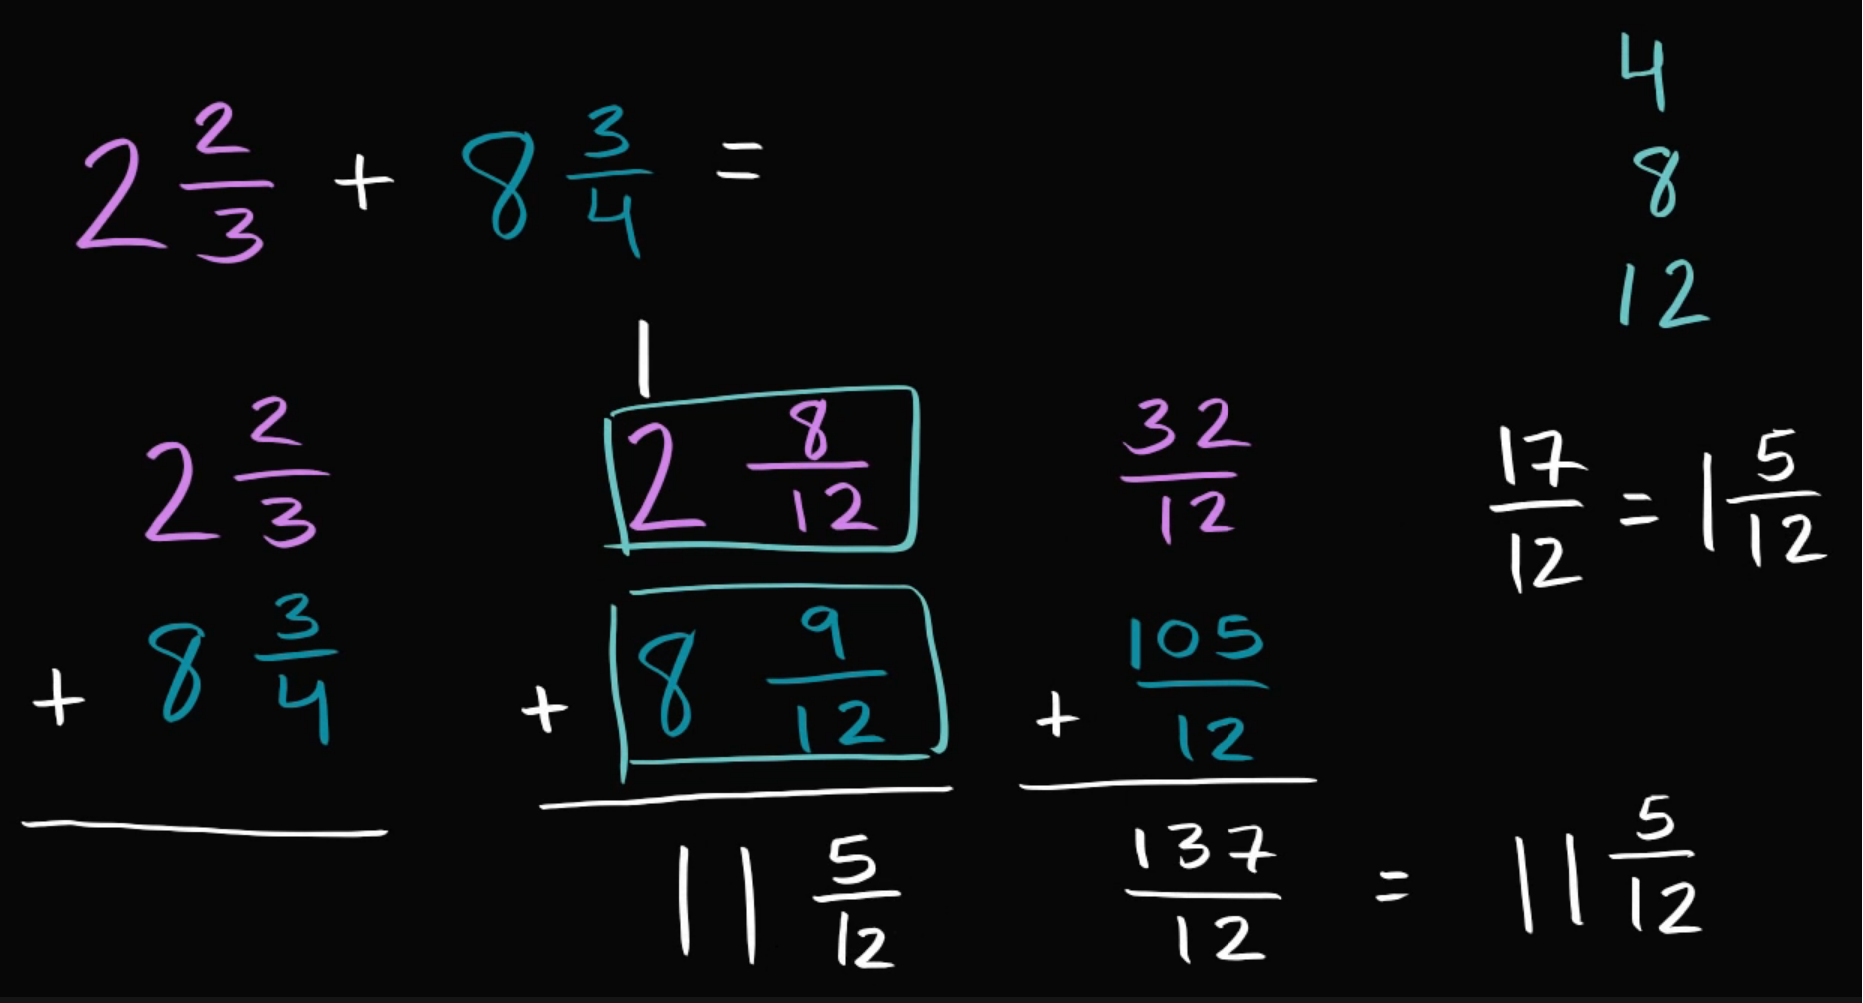 2 2/3 + 8 3/4 =
4
8
12
2 2/3
+ 8 3/4
1
2 8/12
+ 8 9/12
11 5/12
32/12
+ 105/12
137/12 = 11 5/12
17/12 = 1 5/12